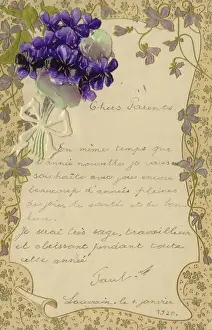 Chers Parents
En même temps que
l'année nouvelle je vous
souhaite avec joie encore
beaucoup d'années pleines
de joie de santé et de bon
heur.
Je serai très sage, travailleur
et obéissant pendant toute
cette année
Paul
Louvain le 1 janvier
1920.